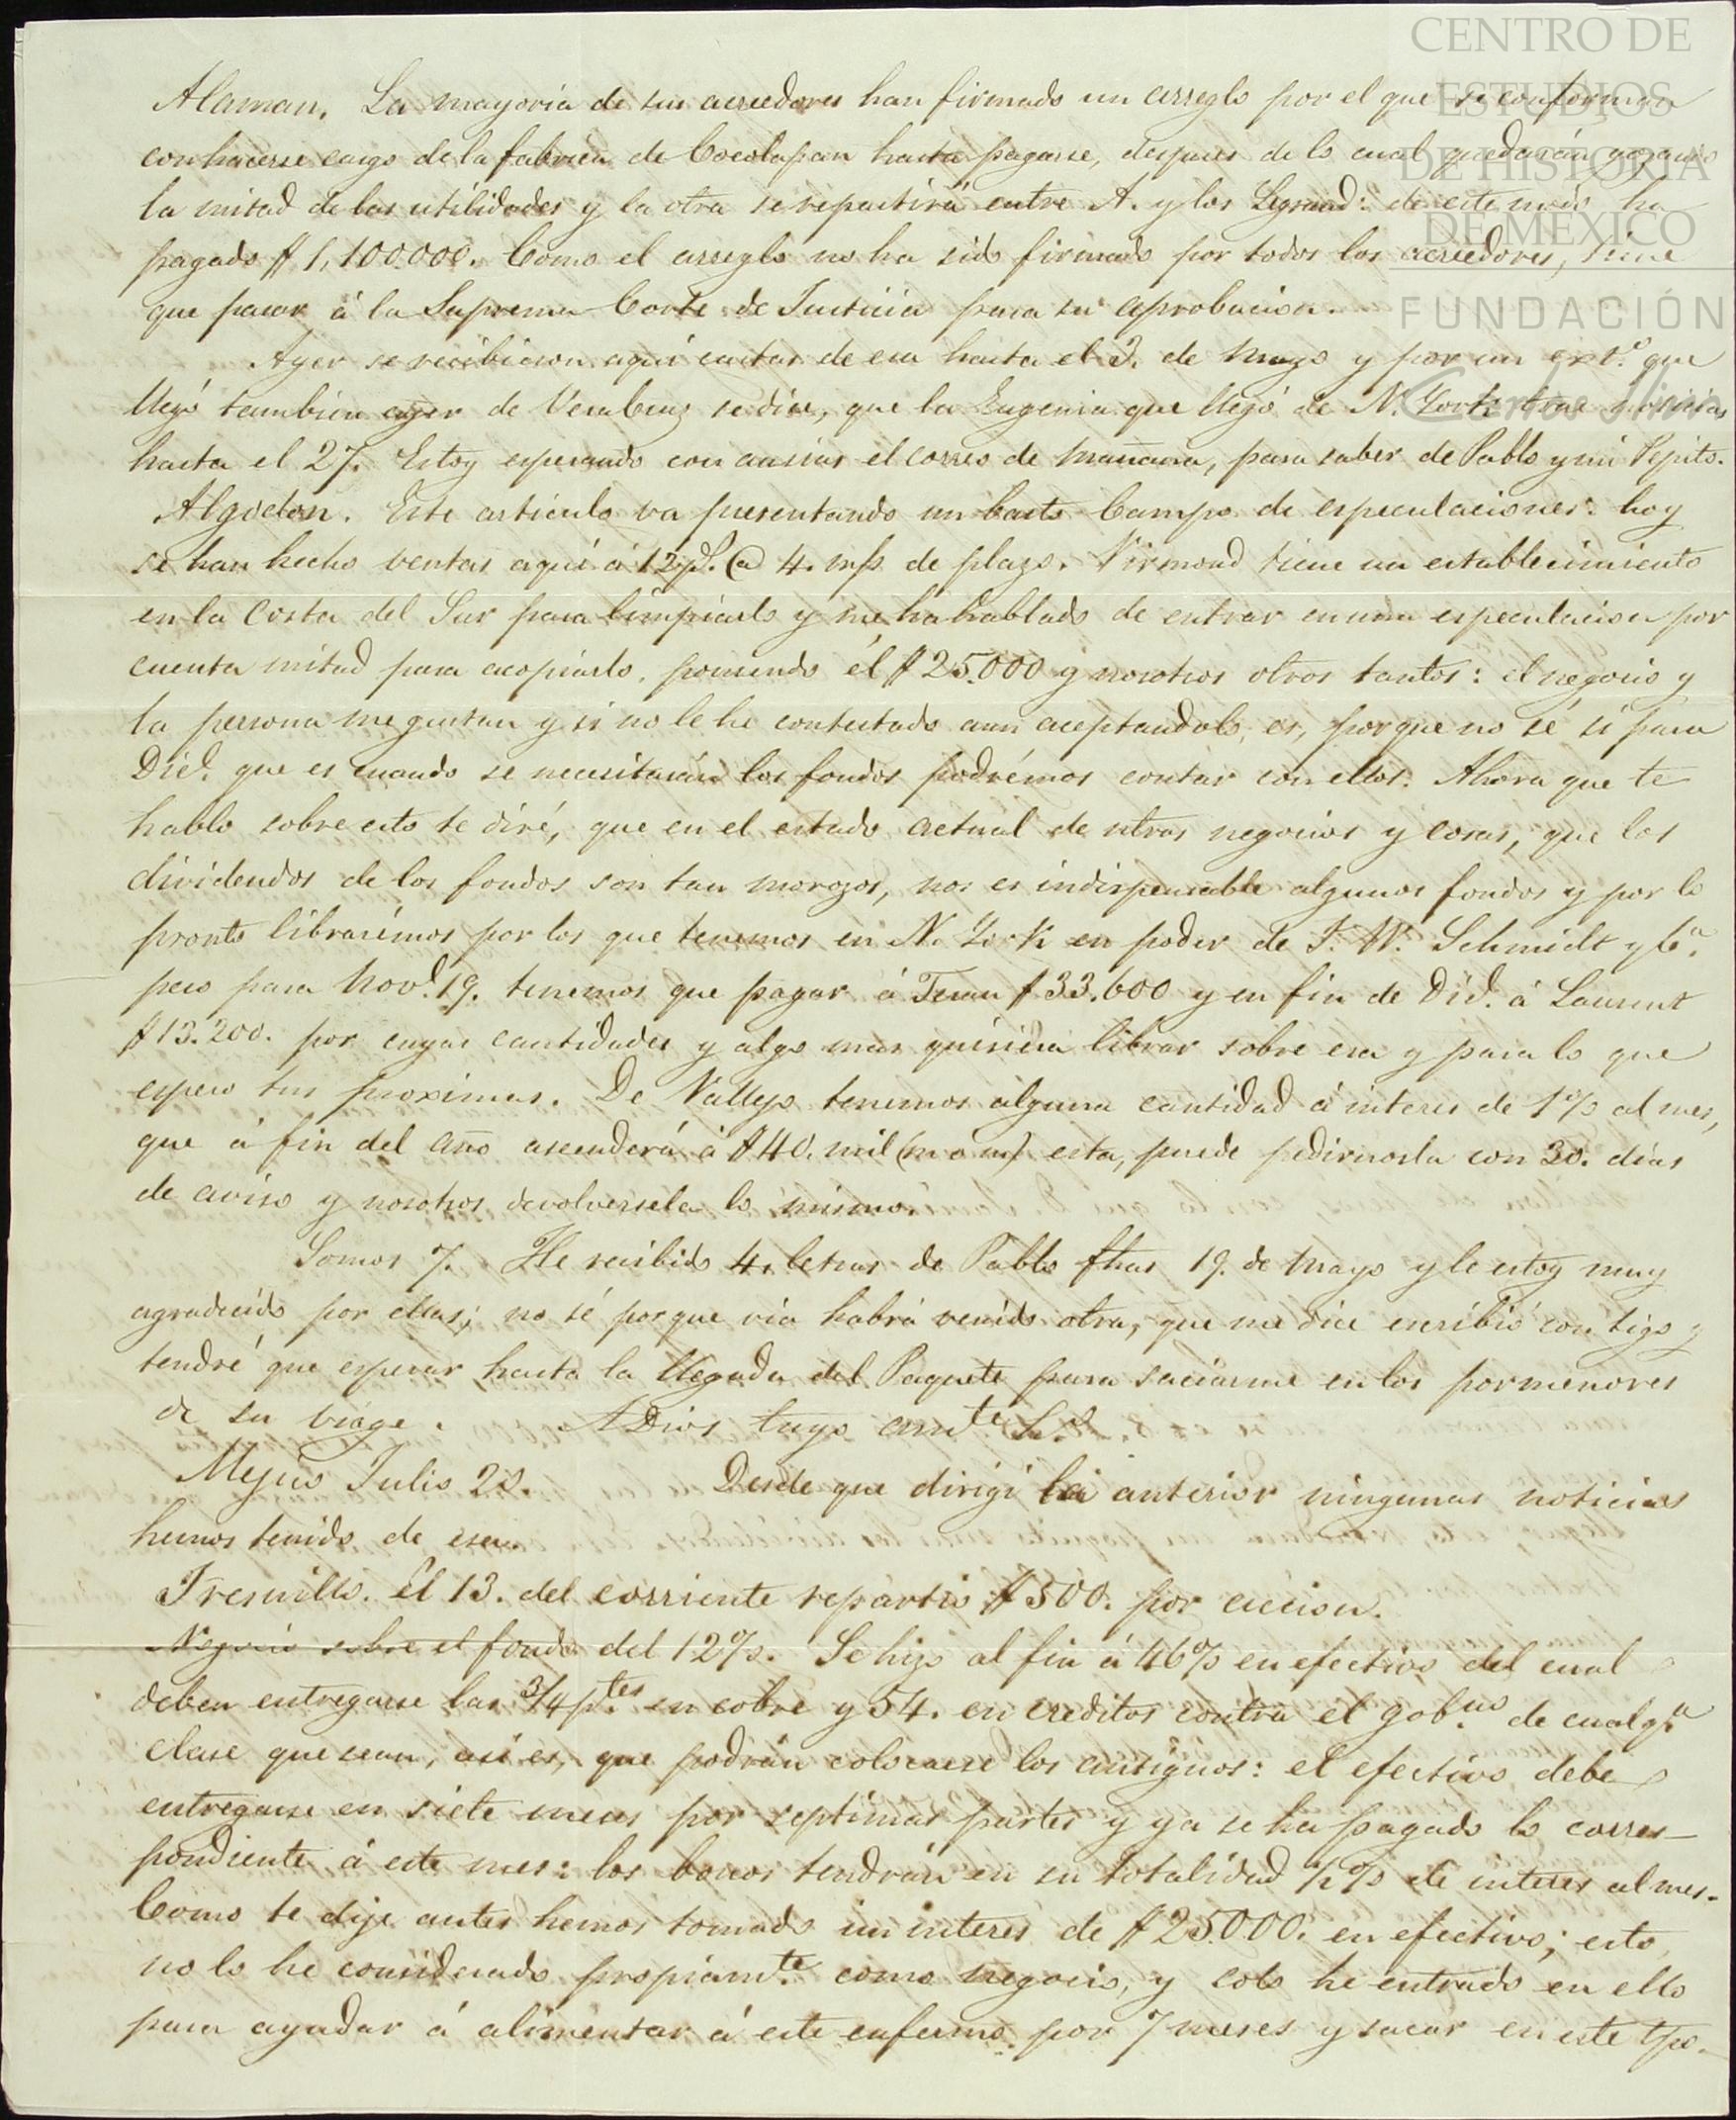 CENTRO DE
ESTUDIOS
DE HISTORIA
DE MÉXICO
FUNDACIÓN
Carlos Slim
Alaman. La mayoria de sus acreedores han firmado un arreglo por el que se conforman
con hacerse cargo de la fabrica de Cocolapan hasta pagarse, despues de lo cual quedarán gozando
la mitad de las utilidades y la otra se repartirá entre A. y los Legrand: de este modo ha
pagado $ 1,100.000. Como el arreglo no ha sido firmado por todos los acreedores, tiene
que pasar á la Suprema Corte de Justicia para su aprobacion.
Ayer se recibieron aqui cartas de esa hasta el 3. de Mayo y por un ext.º que
llegó tambien ayer de VeraCruz se dice, que la Eugenia que llegó de N. York trae noticias
hasta el 27. Estoy esperando con ansias el correo de mañana, para saber de Pablo y mi Pepito.
Algodon. Este articulo va presentando un basto Campo de especulaciones: hoy
se han hecho ventas aqui á 12 p.s @ 4. m/s de plazo. Virmond tiene un establecimiento
en la Costa del Sur para limpiarlo y me ha hablado de entrar en una especulacion por
cuenta mitad para acopiarlo, poniendo él $ 25.000 y nosotros otros tantos: el negocio y
la persona me gustan y si no le he contestado aun aceptandolo, es, porque no sé si para
Dic.e que es cuando se necesitarán los fondos podrémos contar con ellos. Ahora que te
hablo sobre esto te diré, que en el estado actual de ntros negocios y cosas, que los
dividendos de los fondos son tan morozos, nos es indispensable algunos fondos y por lo
pronto librarémos por los que tenemos en N. York en poder de J. W. Schmidt y C.a
pero para Nov.e 19. tenemos que pagar á Teran $ 33.600 y en fin de Dic.e á Laurent
$ 13.200. por cuyas cantidades y algo mas quisiera librar sobre esa y para lo que
espero tus proximas. De Vallejo tenemos alguna cantidad á interes de 1% al mes,
que á fin del año ascenderá á $ 40. mil (m o m) esta, puede pedirnosla con 30. dias
de aviso y nosotros devolversela lo mismo.
Somos 7. He recibido 4. letras de Pablo fhas 19. de Mayo y le estoy muy
agradecido por ellas; no sé porque via habrá venido otra, que me dice escribió contigo y
tendré que esperar hasta la llegada del Paquete para saciarme en los pormenores
de su viage. A Dios tuyo am.te
Mejico Julio 20. Desde que dirigí la anterior ningunas noticias
hemos tenido de esa.
Fresnillo. El 13. del corriente repartió $ 500. por accion.
Negocio sobre el fondo del 12%. Se hizo al fin á 46% en efectivo del cual
deben entregarse las 3/4 p.tes en cobre y 54. en creditos contra el gob.no de cualq.a
clase que sean, asi es, que podrán colocarse los antiguos: el efectivo debe
entregarse en siete meses por septimas partes y ya se ha pagado lo corres-
pondiente á este mes: los bonos tendrán en su totalidad ½% de interes al mes.
Como te dije antes hemos tomado un interes de $ 25000. en efectivo; esto
no lo he considerado propiam.te como negocio, y solo he entrado en ello
para ayudar á alimentar á este enfermo por 7 meses y sacar en este tpo.